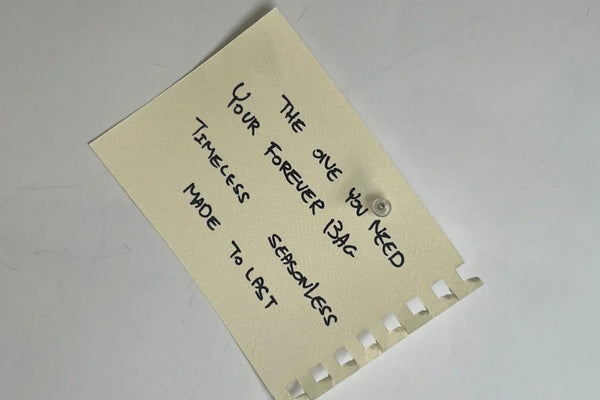 THE ONE YOU NEED
YOUR FOREVER BAG
TIMELESS SEASONLESS
MADE TO LAST